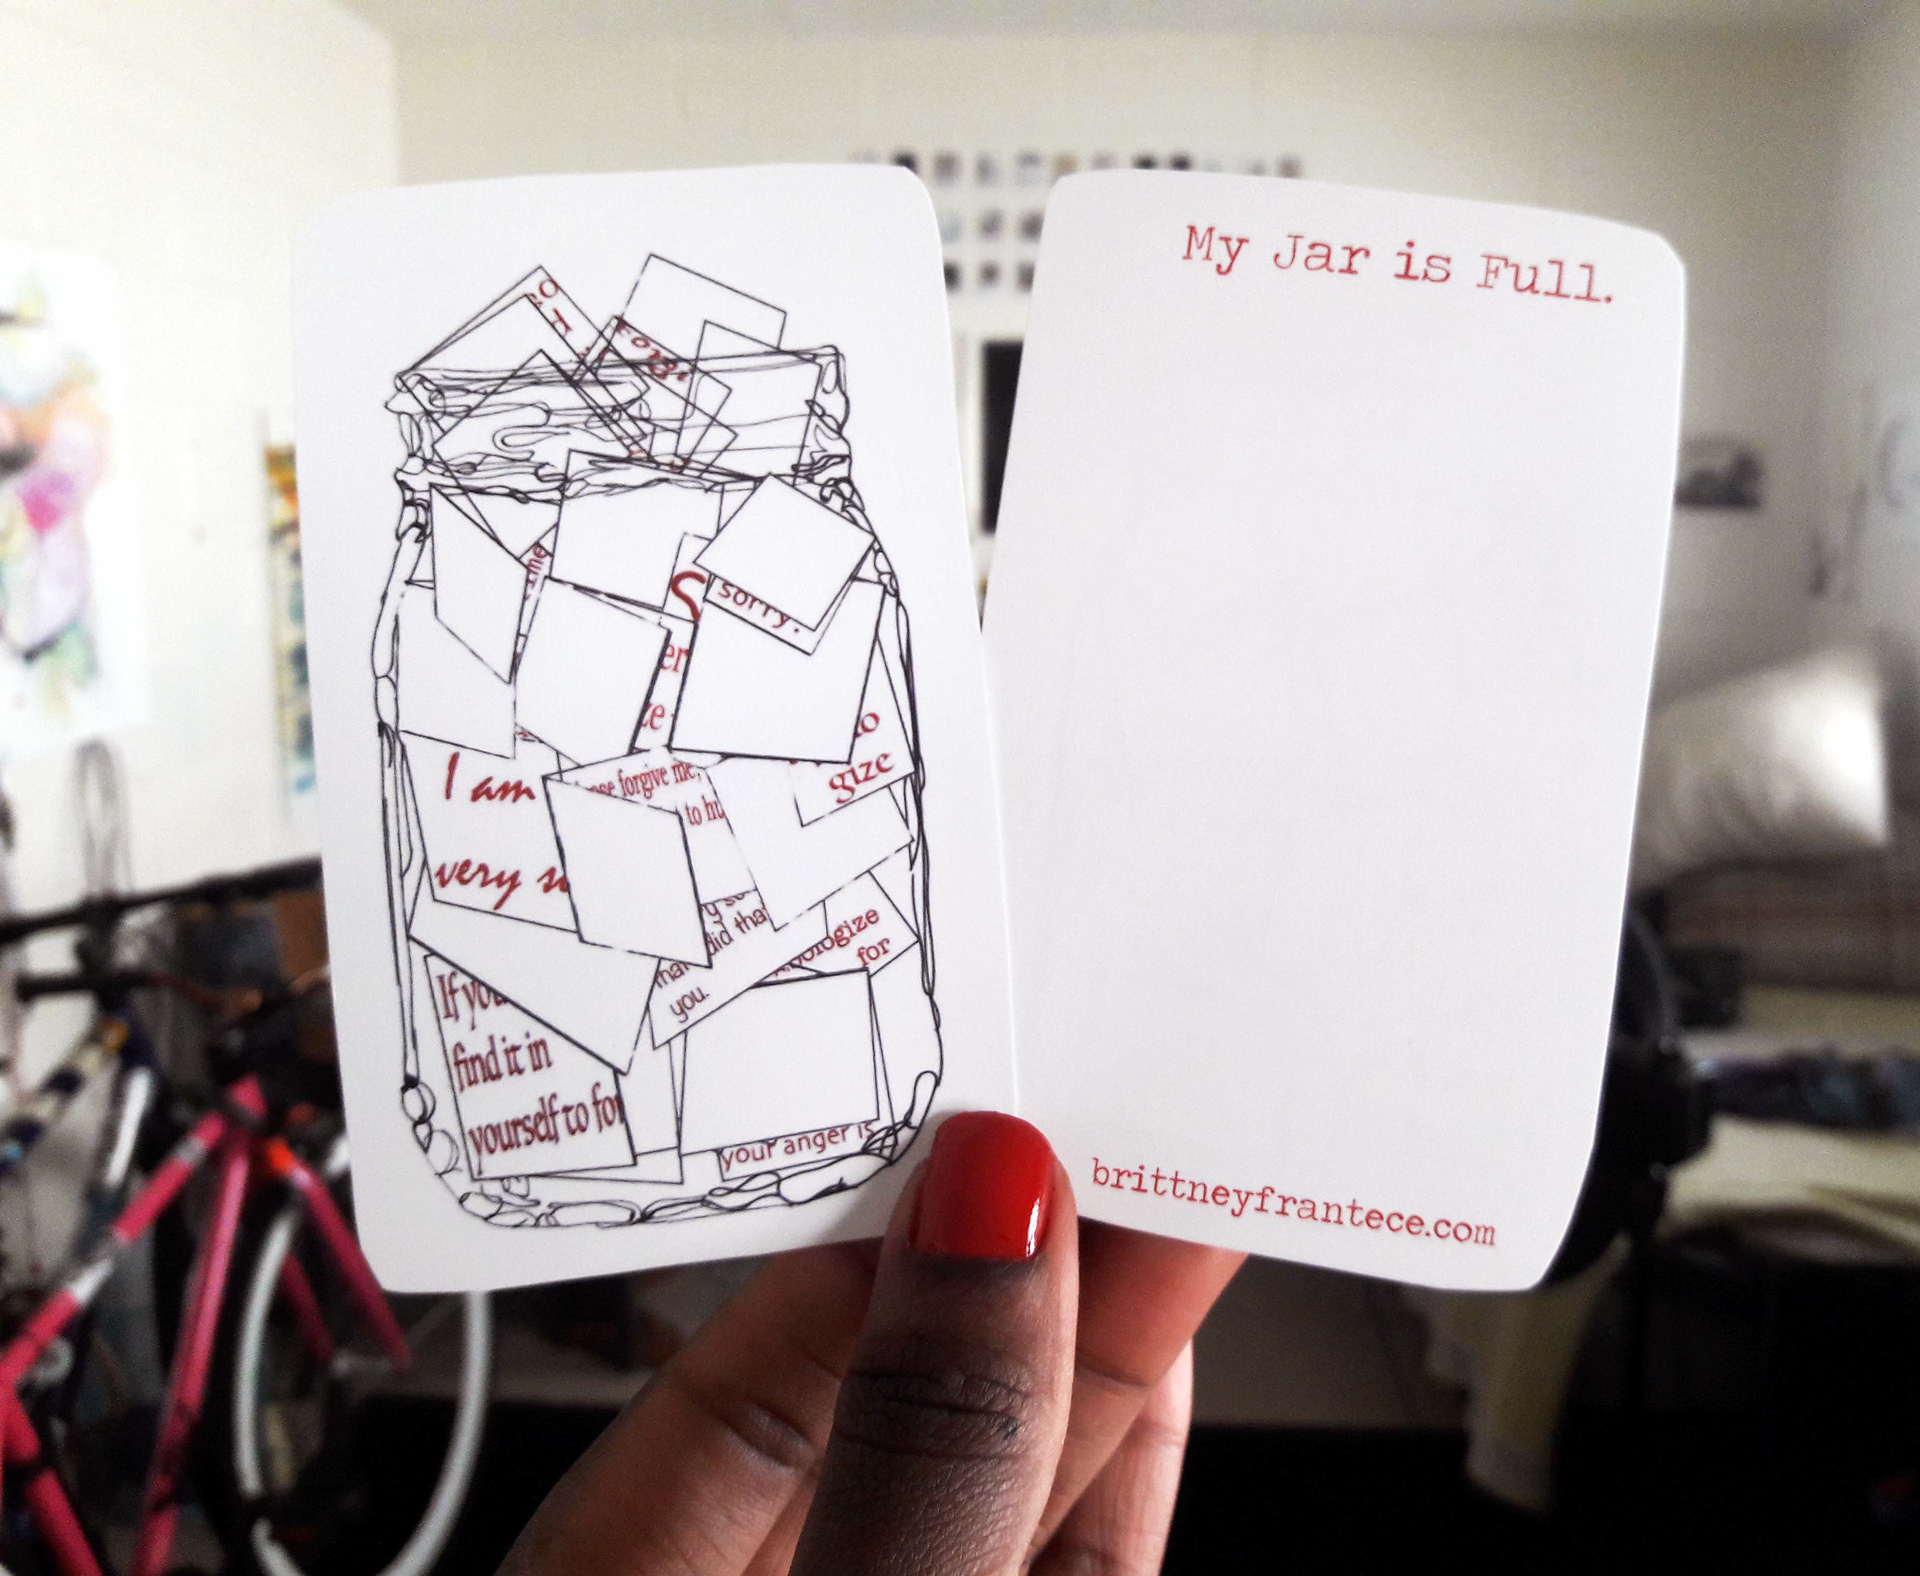 sorry.
to
gize
I am
very
forgive me,
to
did
you.
Apologize
for
If you
find it in
yourself to
your anger is
My Jar is Full.
brittneyfrantece.com